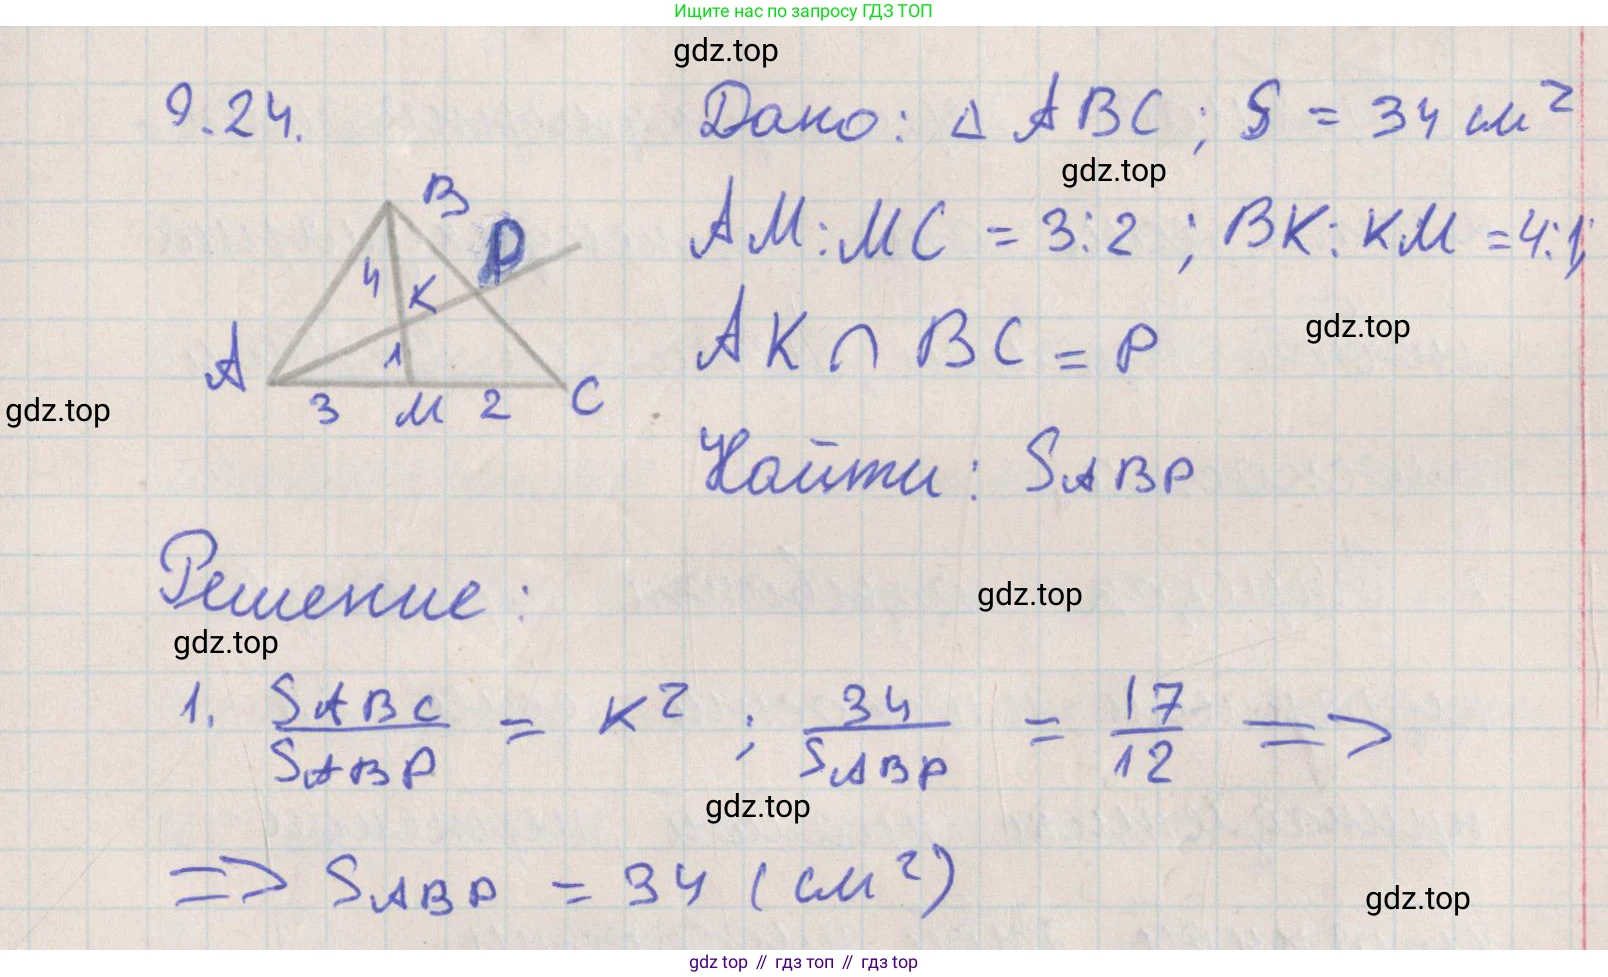 Ищите нас по запросу ГДЗ ТОП
gdz.top
9.24.
Дано: Δ ABC; S = 34 см²
gdz.top
B
P
AM:MC = 3:2; BK:KM = 4:1;
4
K
A
1
AK ∩ BC = P
gdz.top
gdz.top
3
M
2
C
Найти: SABP
Решение:
gdz.top
gdz.top
1. SABC/SABP = K²; 34/SABP = 17/12 =>
gdz.top
=> SABP = 34 (см²)
gdz.top
gdz top // гдз топ // gdz top